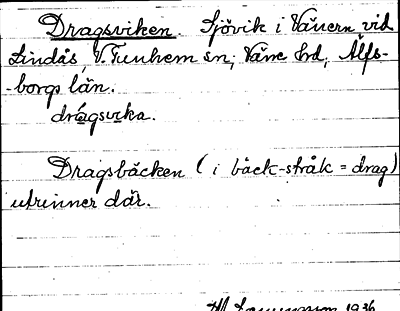 Dragsviken. Sjövik i Vänern vid
Lindås, V. Tunhem sn; Väne hrd, Älfs-
-borgs län.
drágsvika.
Dragsbäcken (i bäck-stråk = drag)
utrinner där.
1936